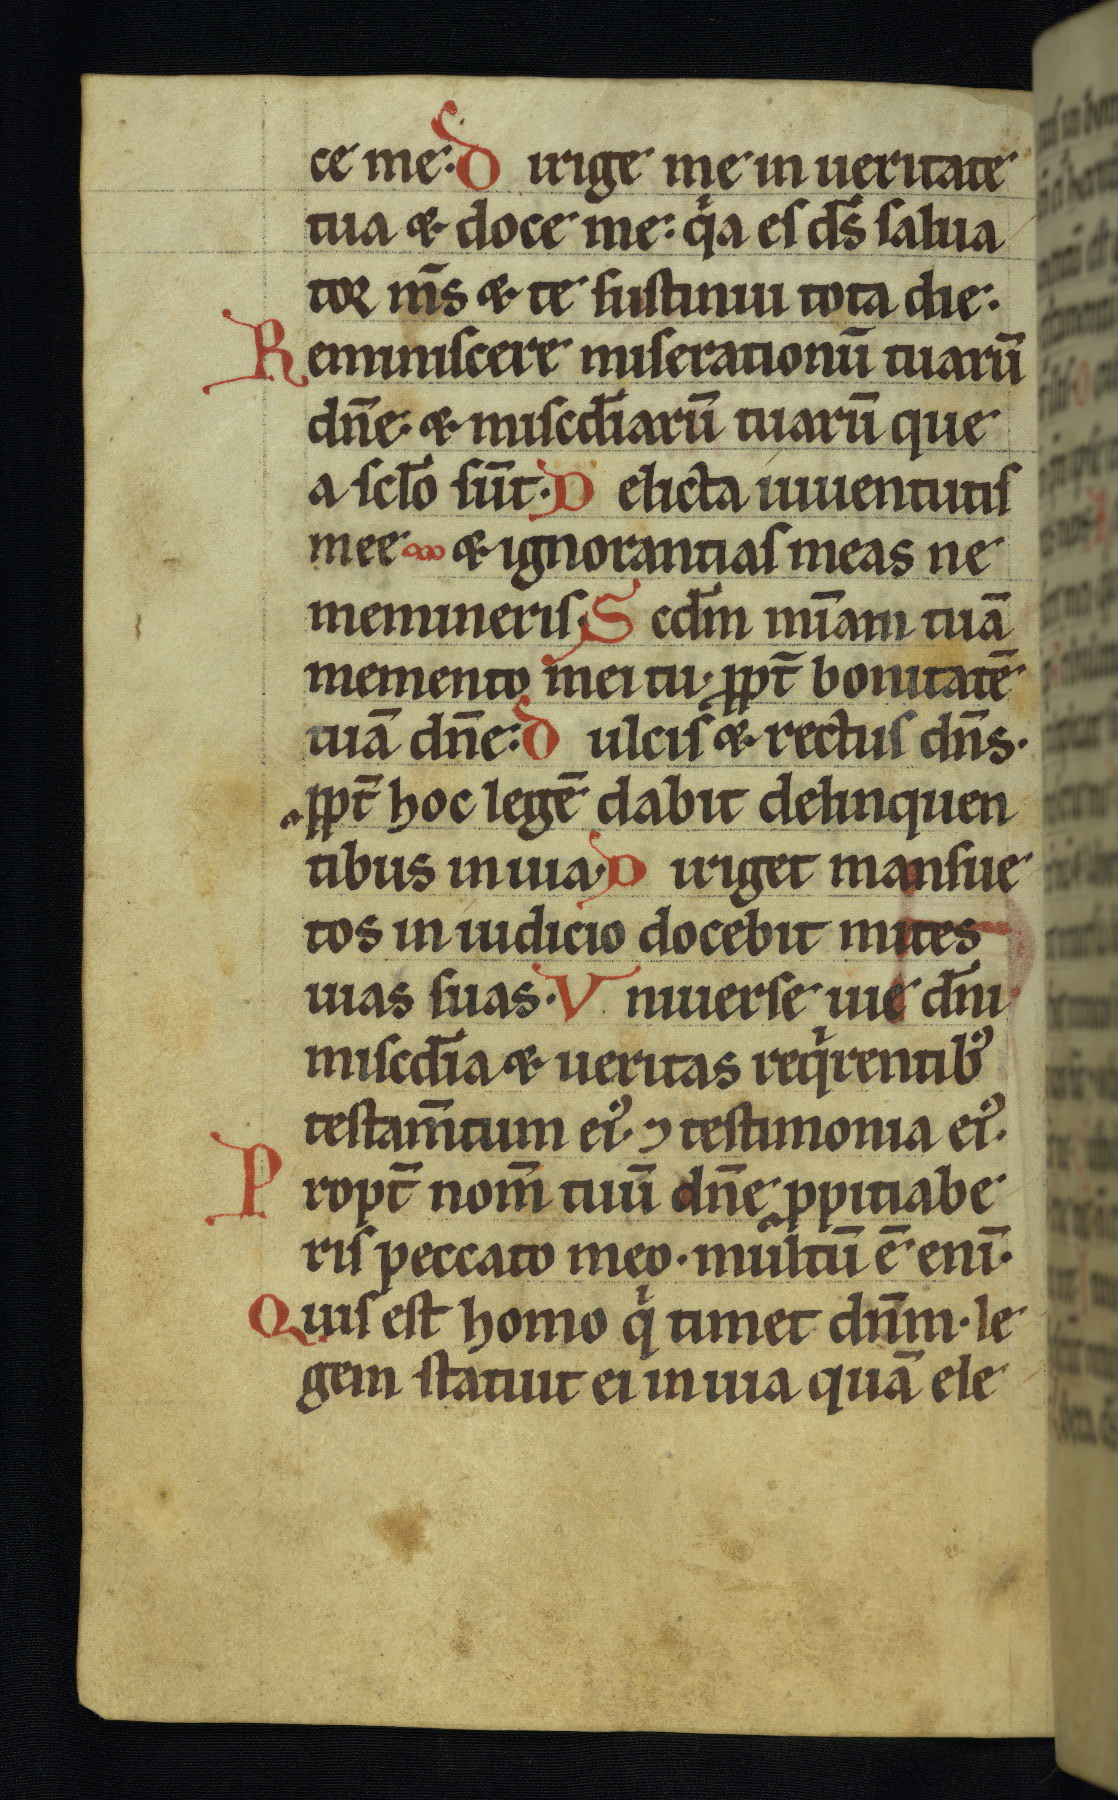 ce me: Dirige me in ueritate
tua & doce me: qͥa es ds̄ salua
tor nr̄s & te sustinui tota die.
Reminiscere miserationū tuarū
dn̄e. & misc̄diarū tuarū que
a sc̄lo sūt. Delicta iuuentutis
mee & ignorantias meas ne
memineris. Sc̄dm mīam tuā
memento mei tu. ꝓpt̄ bonitatē
tuā dn̄e: Dulcis & rectus dn̄s.
ꝓpt̄ hoc legē dabit delinquen
tibus in uia. Diriget mansue
tos in iudicio docebit mites
uias suas. Vniuerse uie dn̄i
misc̄dia & ueritas reqͥrentibꝰ
testam̄tum eiꝰ. ⁊ testimonia eiꝰ.
Propt̄ nom̄ tuū dn̄e ꝓpitiabe
ris peccato meo. multū ē enī.
Quis est homo qͥ timet dn̄m. le
gem statuit ei in uia quā ele